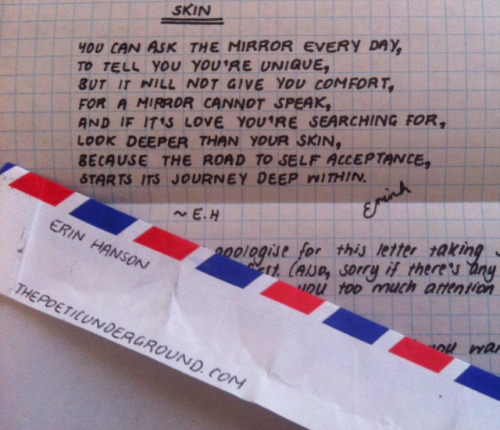 SKIN
YOU CAN ASK THE MIRROR EVERY DAY,
TO TELL YOU YOU'RE UNIQUE,
BUT IT WILL NOT GIVE YOU COMFORT,
FOR A MIRROR CANNOT SPEAK,
AND IF IT'S LOVE YOU'RE SEARCHING FOR,
LOOK DEEPER THAN YOUR SKIN,
BECAUSE THE ROAD TO SELF ACCEPTANCE,
STARTS ITS JOURNEY DEEP WITHIN.
~ E.H
apologise for this letter taking
(Also, sorry if there's any
you too much attention
ERIN HANSON
THEPOETICUNDERGROUND.COM